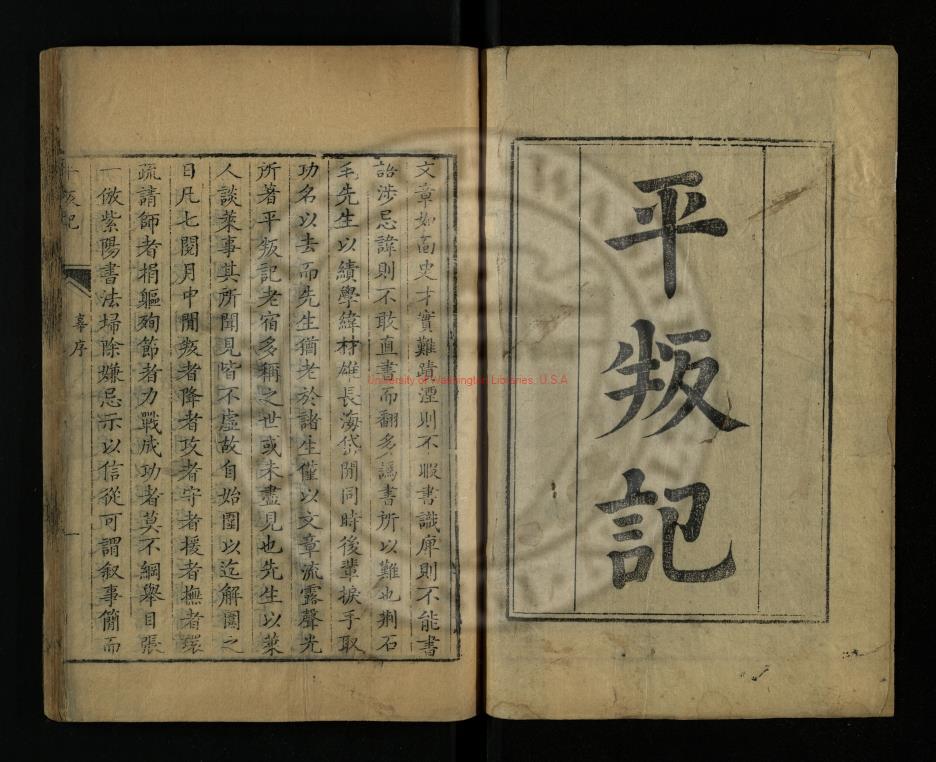 平叛記
文章如畜史才實難蹟湮則不暇書識庳則不能書
詒涉忌諱則不敢直書而翻多譌書所以難也荆石
毛先生以績學緯材雄長海岱間同時後輩掞手取
功名以去而先生猶老於諸生僅以文章流露聲光
所著平叛記老宿多稱之世或未盡見也先生以萊
人談萊事其所聞見皆不虛故自始圍以迄解圍之
日凡七閱月中閒叛者降者攻者守者援者撫者環
疏請師者捐軀殉節者力戰成功者莫不綱舉目張
一倣紫陽書法埽除嫌忌示以信從可謂叙事簡而
平叛記
序
一
University of Washington Libraries, U.S.A